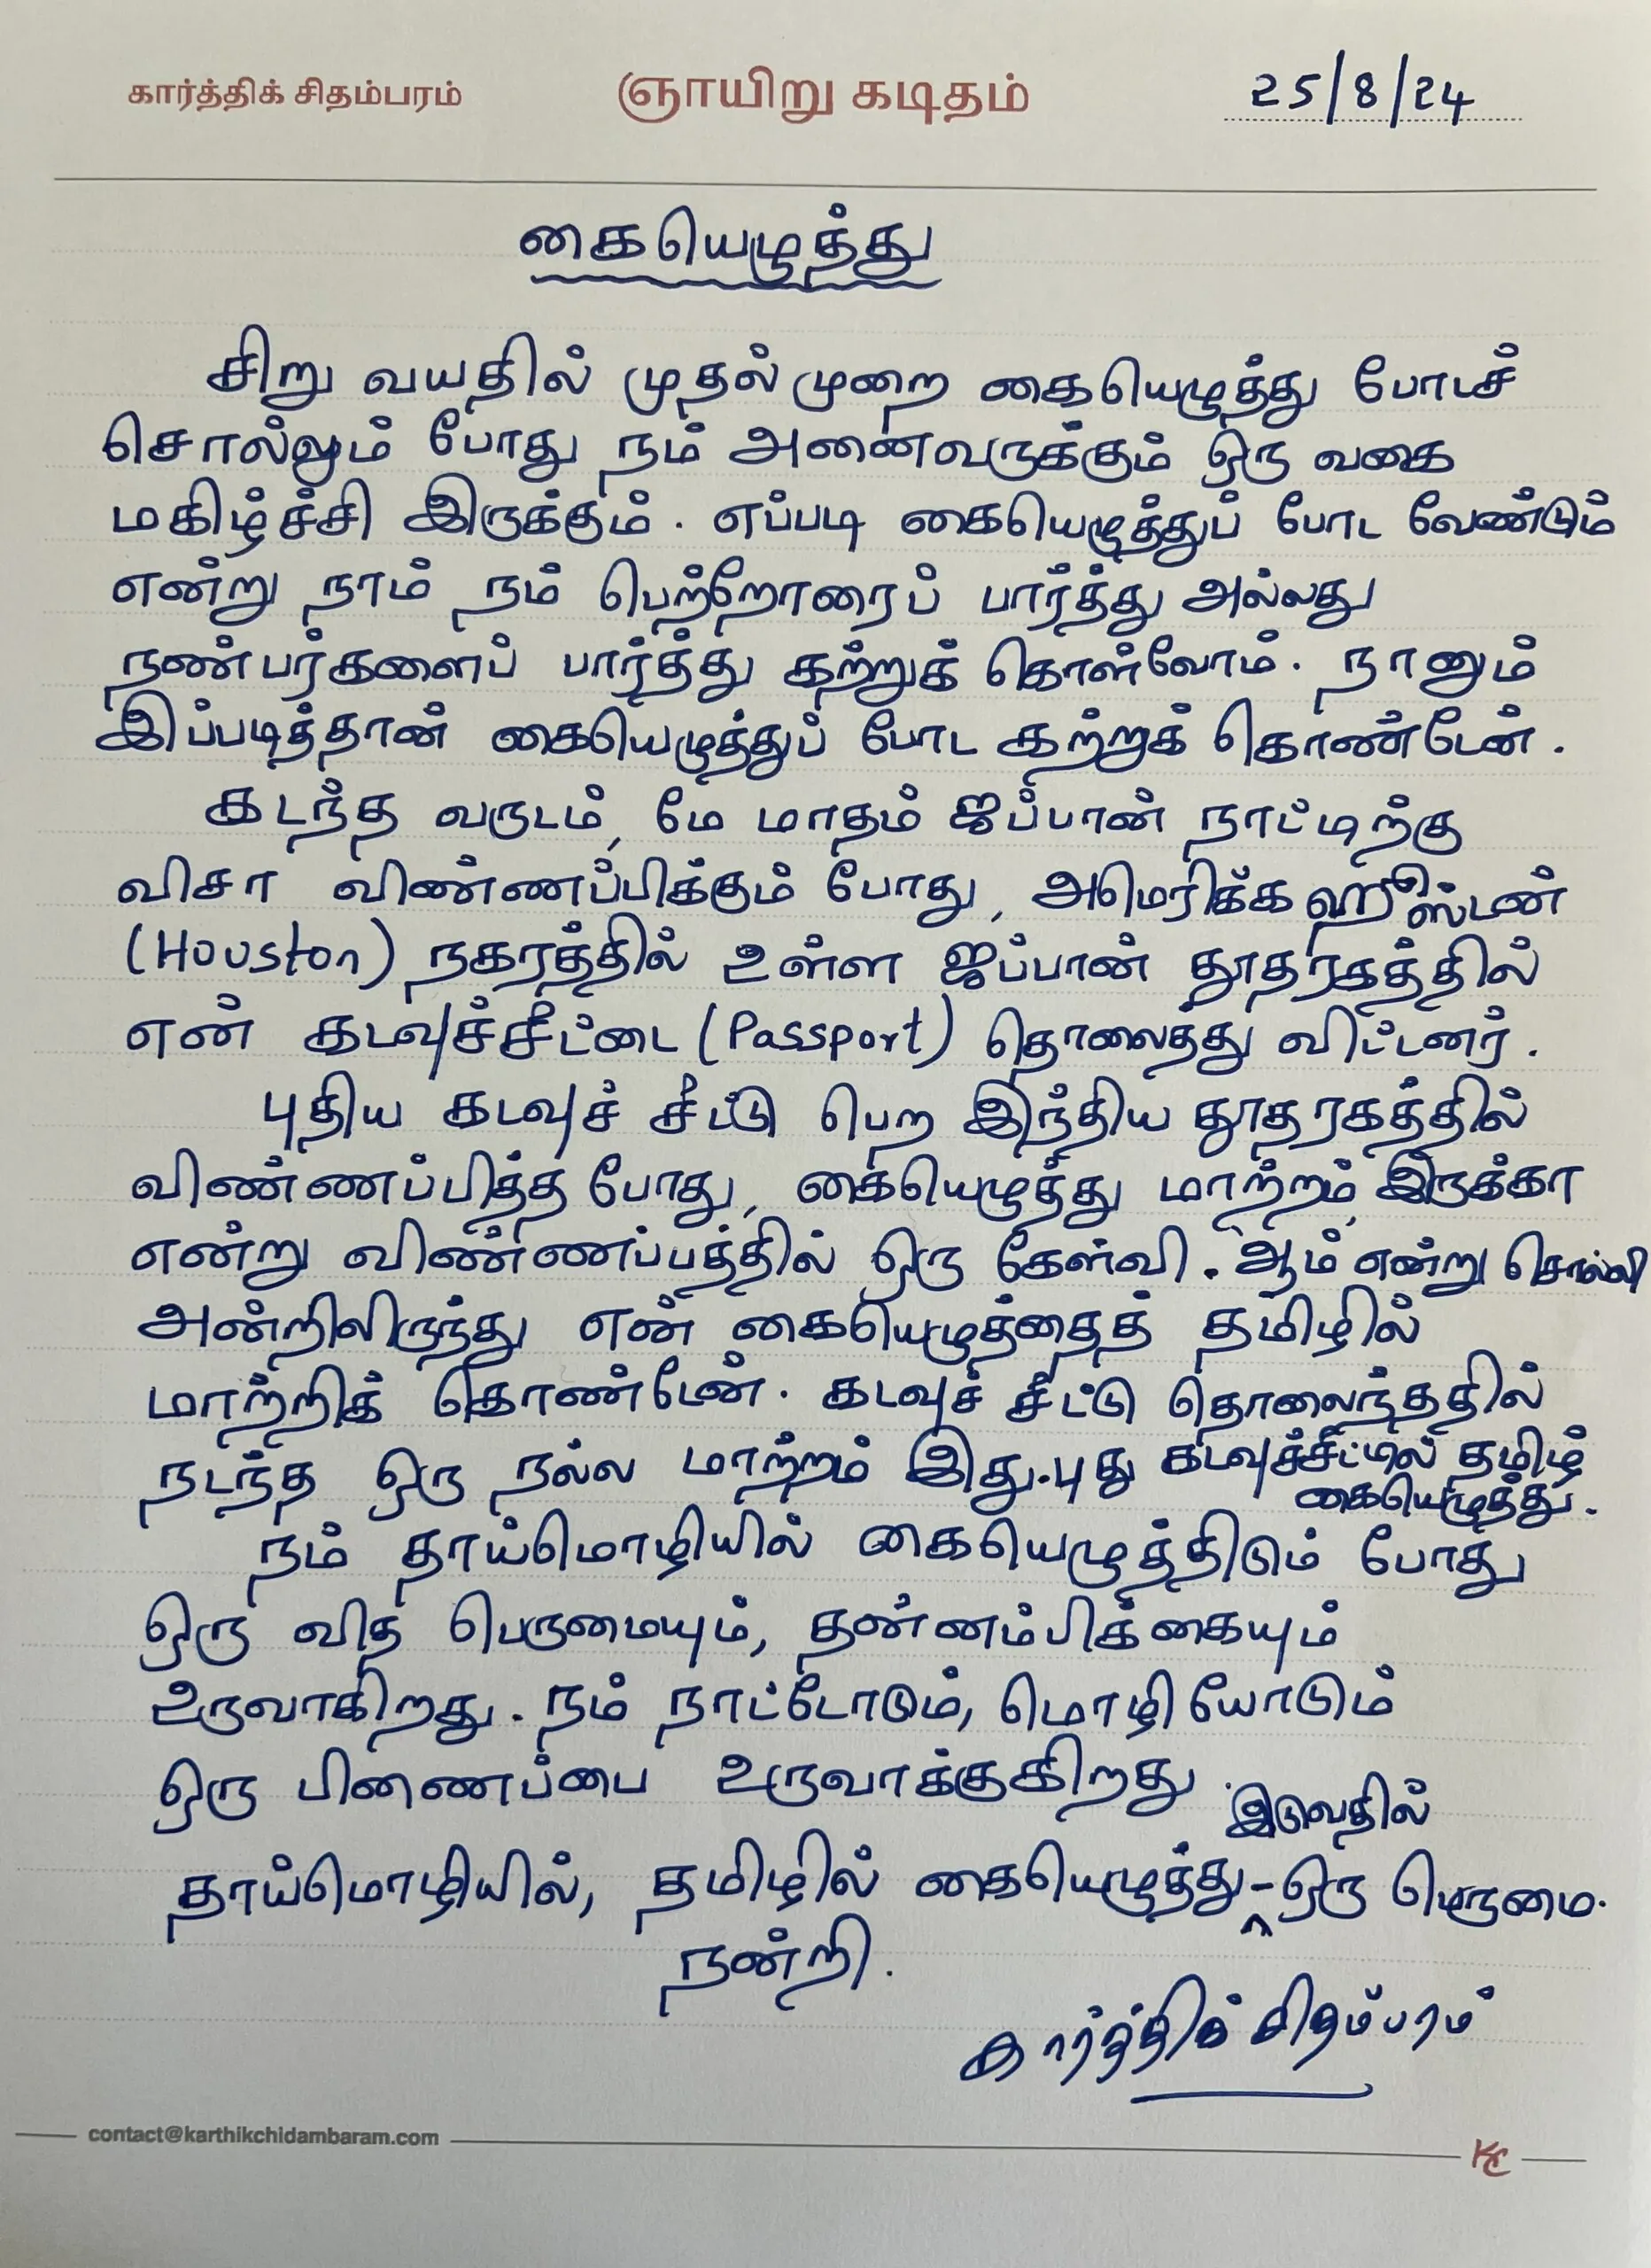 கார்த்திக் சிதம்பரம் ஞாயிறு கடிதம் 25/8/24
கையெழுத்து
சிறு வயதில் முதல் முறை கையெழுத்து போடச்
சொல்லும் போது நம் அனைவருக்கும் ஒரு வகை
மகிழ்ச்சி இருக்கும். எப்படி கையெழுத்துப் போட வேண்டும்
என்று நாம் நம் பெற்றோரைப் பார்த்து அல்லது
நண்பர்களைப் பார்த்து கற்றுக் கொள்வோம். நானும்
இப்படித்தான் கையெழுத்துப் போட கற்றுக் கொண்டேன்.
கடந்த வருடம், மே மாதம் ஜப்பான் நாட்டிற்கு
விசா விண்ணப்பிக்கும் போது, அமெரிக்க ஹூஸ்டன்
(Houston) நகரத்தில் உள்ள ஜப்பான் தூதரகத்தில்
என் கடவுச்சீட்டை (Passport) தொலைத்து விட்டனர்.
புதிய கடவுச் சீட்டு பெற இந்திய தூதரகத்தில்
விண்ணப்பித்த போது, கையெழுத்து மாற்றம் இருக்கா
என்று விண்ணப்பத்தில் ஒரு கேள்வி. ஆம் என்று சொல்லி
அன்றிலிருந்து என் கையெழுத்தைத் தமிழில்
மாற்றிக் கொண்டேன். கடவுச் சீட்டு தொலைந்ததில்
நடந்த ஒரு நல்ல மாற்றம் இது. புது கடவுச்சீட்டில் தமிழ்
கையெழுத்து.
நம் தாய்மொழியில் கையெழுத்திடும் போது
ஒரு வித பெருமையும், தன்னம்பிக்கையும்
உருவாகிறது. நம் நாட்டோடும், மொழியோடும்
ஒரு பிணைப்பை உருவாக்குகிறது.
இடுவதில்
தாய்மொழியில், தமிழில் கையெழுத்து - ஒரு பெருமை.
நன்றி.
கார்த்திக் சிதம்பரம்
contact@karthikchidambaram.com KC